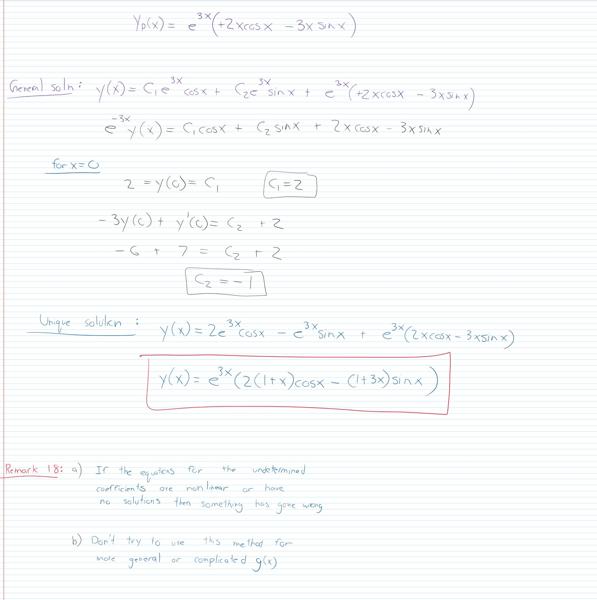 Yp(x) = e^3x (+2xcosx - 3x sinx)
General soln: y(x) = C₁e^3x cosx + C₂e^3x sinx + e^3x (+2xcosx - 3xsinx)
e^-3x y(x) = C₁cosx + C₂ sinx + 2xcosx - 3xsinx
for x=0
2 = y(0) = C₁ C₁=2
-3y(0) + y'(0) = C₂ + 2
-6 + 7 = C₂ + 2
C₂ = -1
Unique solution: y(x) = 2e^3x cosx - e^3x sinx + e^3x (2xcosx - 3xsinx)
y(x) = e^3x (2(1+x)cosx - (1+3x)sinx)
Remark 18: a) If the equations for the undetermined
coefficients are nonlinear or have
no solutions then something has gone wrong
b) Don't try to use this method for
more general or complicated g(x)